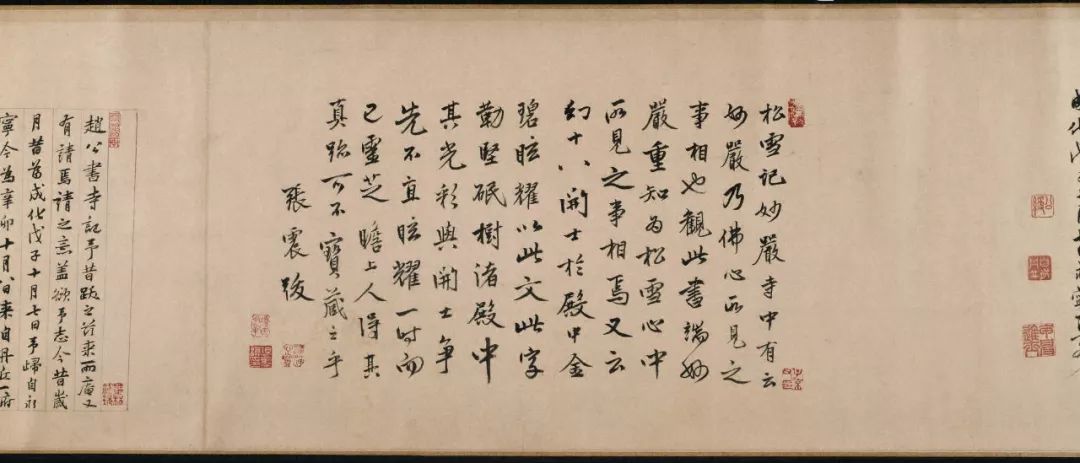 松雪記妙嚴寺中有云
妙嚴乃佛心所見之
事相也觀此書端妙
嚴重知為松雪心中
所見之事相焉又云
幻十八開士於殿中金
碧眩耀以此文此字
勒堅珉樹諸殿中
其光彩與開士爭
先不亶眩耀一時而
已靈芝瞻上人得其
真跡可不寶藏之乎
張震跋
趙公書寺記予昔跋之茲來兩庵又
有請焉請之意蓋欲予志今昔歲
月昔為成化戊子十月七日予歸自永
寧今為辛卯十月八日來自丹丘一府